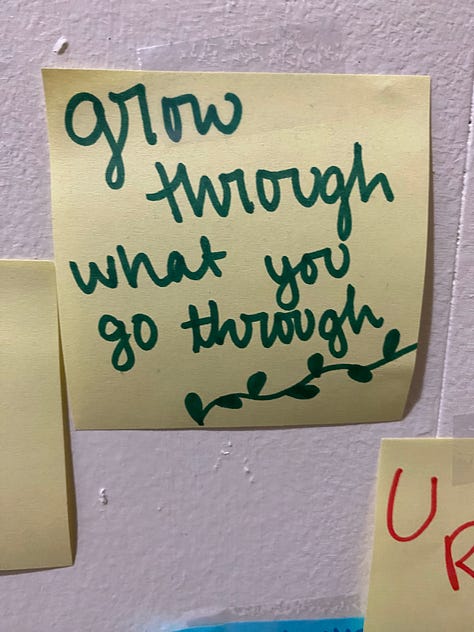 grow
through
what you
go through
U
R